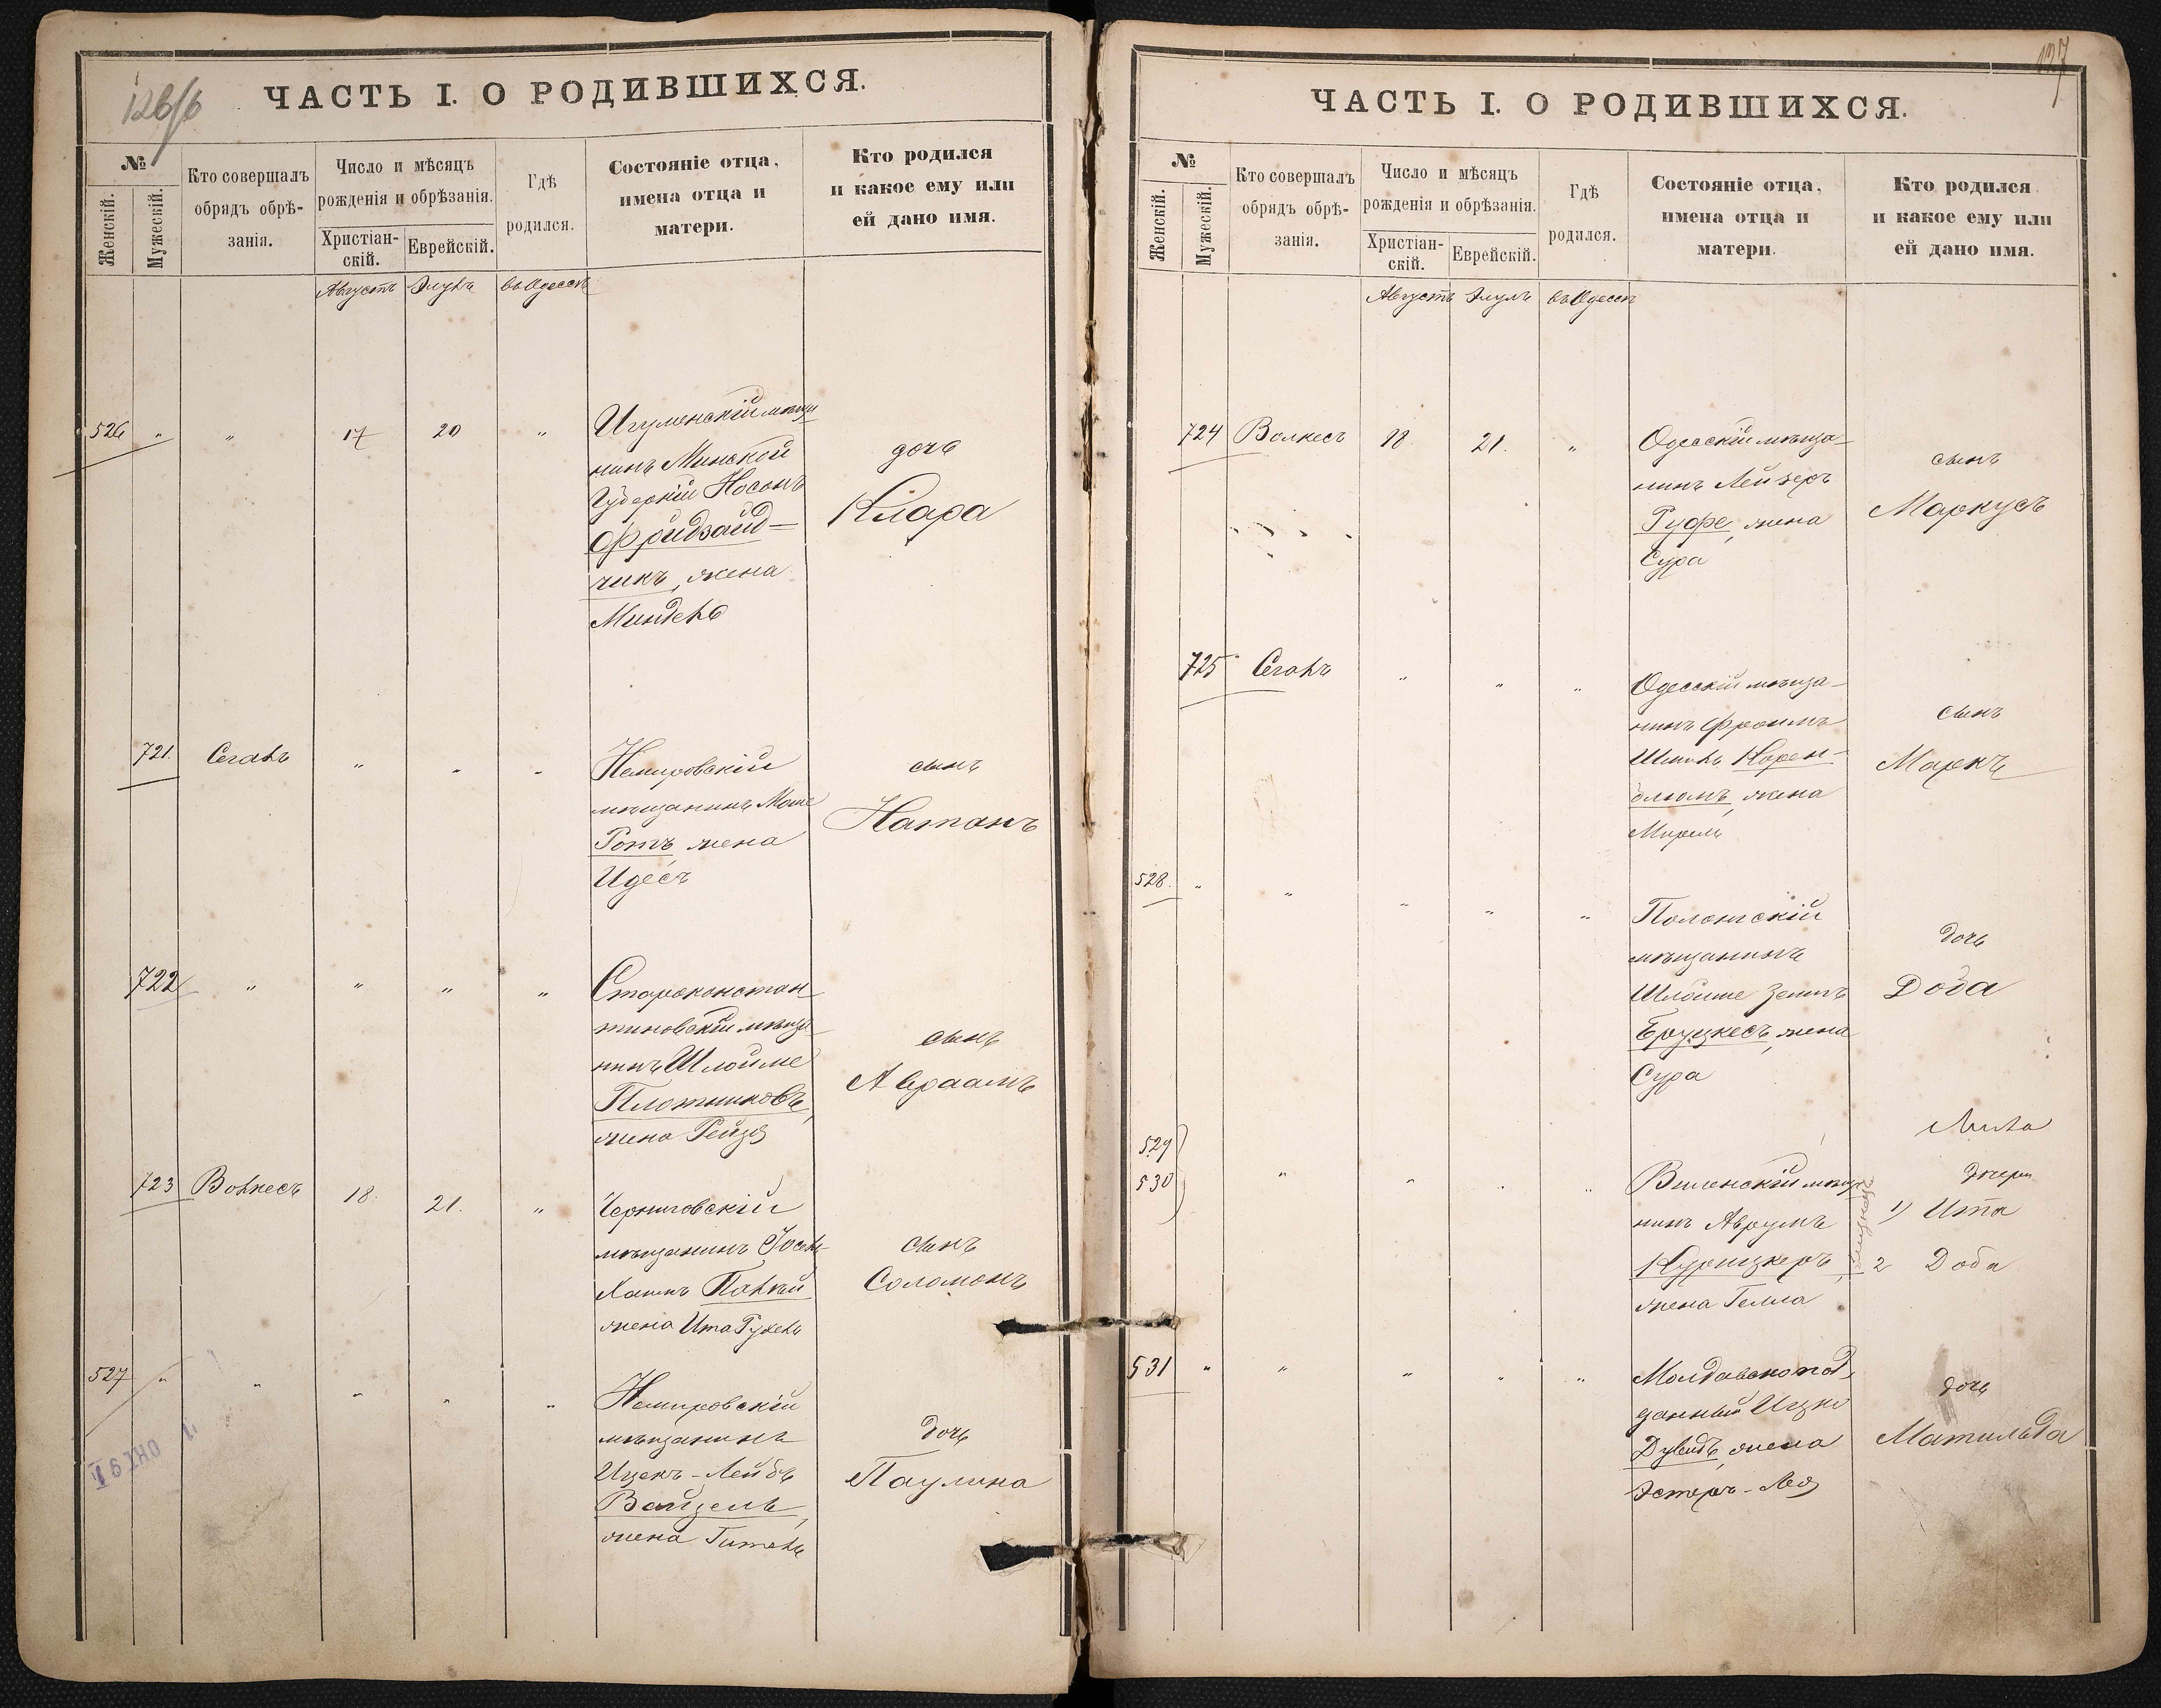 126/б
ЧАСТЬ I. О РОДИВШИХСЯ.
№
Женскій.
Мужескій.
Кто совершалъ
обрядъ обрѣ-
занія.
Число и мѣсяцъ
рожденія и обрѣзанія.
Христіан-
скій.
Еврейскій.
Гдѣ
родился.
Состояніе отца,
имена отца и
матери.
Кто родился
и какое ему или
ей дано имя.
Августъ Элулъ въ Одессѣ
526 " " 17 20 "
Игуменскій мѣща-
нинъ Минской
Губерніи Носонъ
Фридзанд-
чикъ, жена
Миндель
дочь
Клара
721. Сегалъ " " "
Немировскій
мѣщанинъ Моше
Ротъ жена
Идесъ
сынъ
Натанъ
722 " " " "
Староконстан-
тиновскій мѣща-
нинъ Шлойме
Плотниковъ,
жена Рейзя
сынъ
Авраамъ
723 Волкесъ 18. 21. "
Черниговскій
мѣщанинъ Іосель-
Хаимъ
жена Ита Рухель
сынъ
Соломонъ
527 " " " " "
Немировскій
мѣщанинъ
Ицекъ-Лейбъ
Вайцель,
жена Гитель
дочь
Паулина
127
ЧАСТЬ I. О РОДИВШИХСЯ.
№
Женскій.
Мужескій.
Кто совершалъ
обрядъ обрѣ-
занія.
Число и мѣсяцъ
рожденія и обрѣзанія.
Христіан-
скій.
Еврейскій.
Гдѣ
родился.
Состояніе отца,
имена отца и
матери.
Кто родился
и какое ему или
ей дано имя.
Августъ Элулъ въ Одессѣ
724 Волкесъ 18. 21. "
Одесскій мѣща-
нинъ Лейзеръ
Руфе, жена
Сура
сынъ
Маркусъ
725 Сегалъ " " "
Одесскій мѣща-
нинъ Фроимъ
Шмиль Корен-
блюмъ, жена
Мирель
сынъ
Маркъ
528. " " " " "
Полонскій
мѣщанинъ
Шлойме Зелигъ
Бруцкесъ, жена
Сура
дочь
Доба
529
530 " " " "
Виленскій мѣща-
нинъ Аврумъ
Курицкеръ,
жена Гелла
дочери
1) Ита
2 Доба
531 " " " " "
Молдавскопод-
данный Ицко
Дувидъ, жена
Эстеръ-Лея
дочь
Матильда